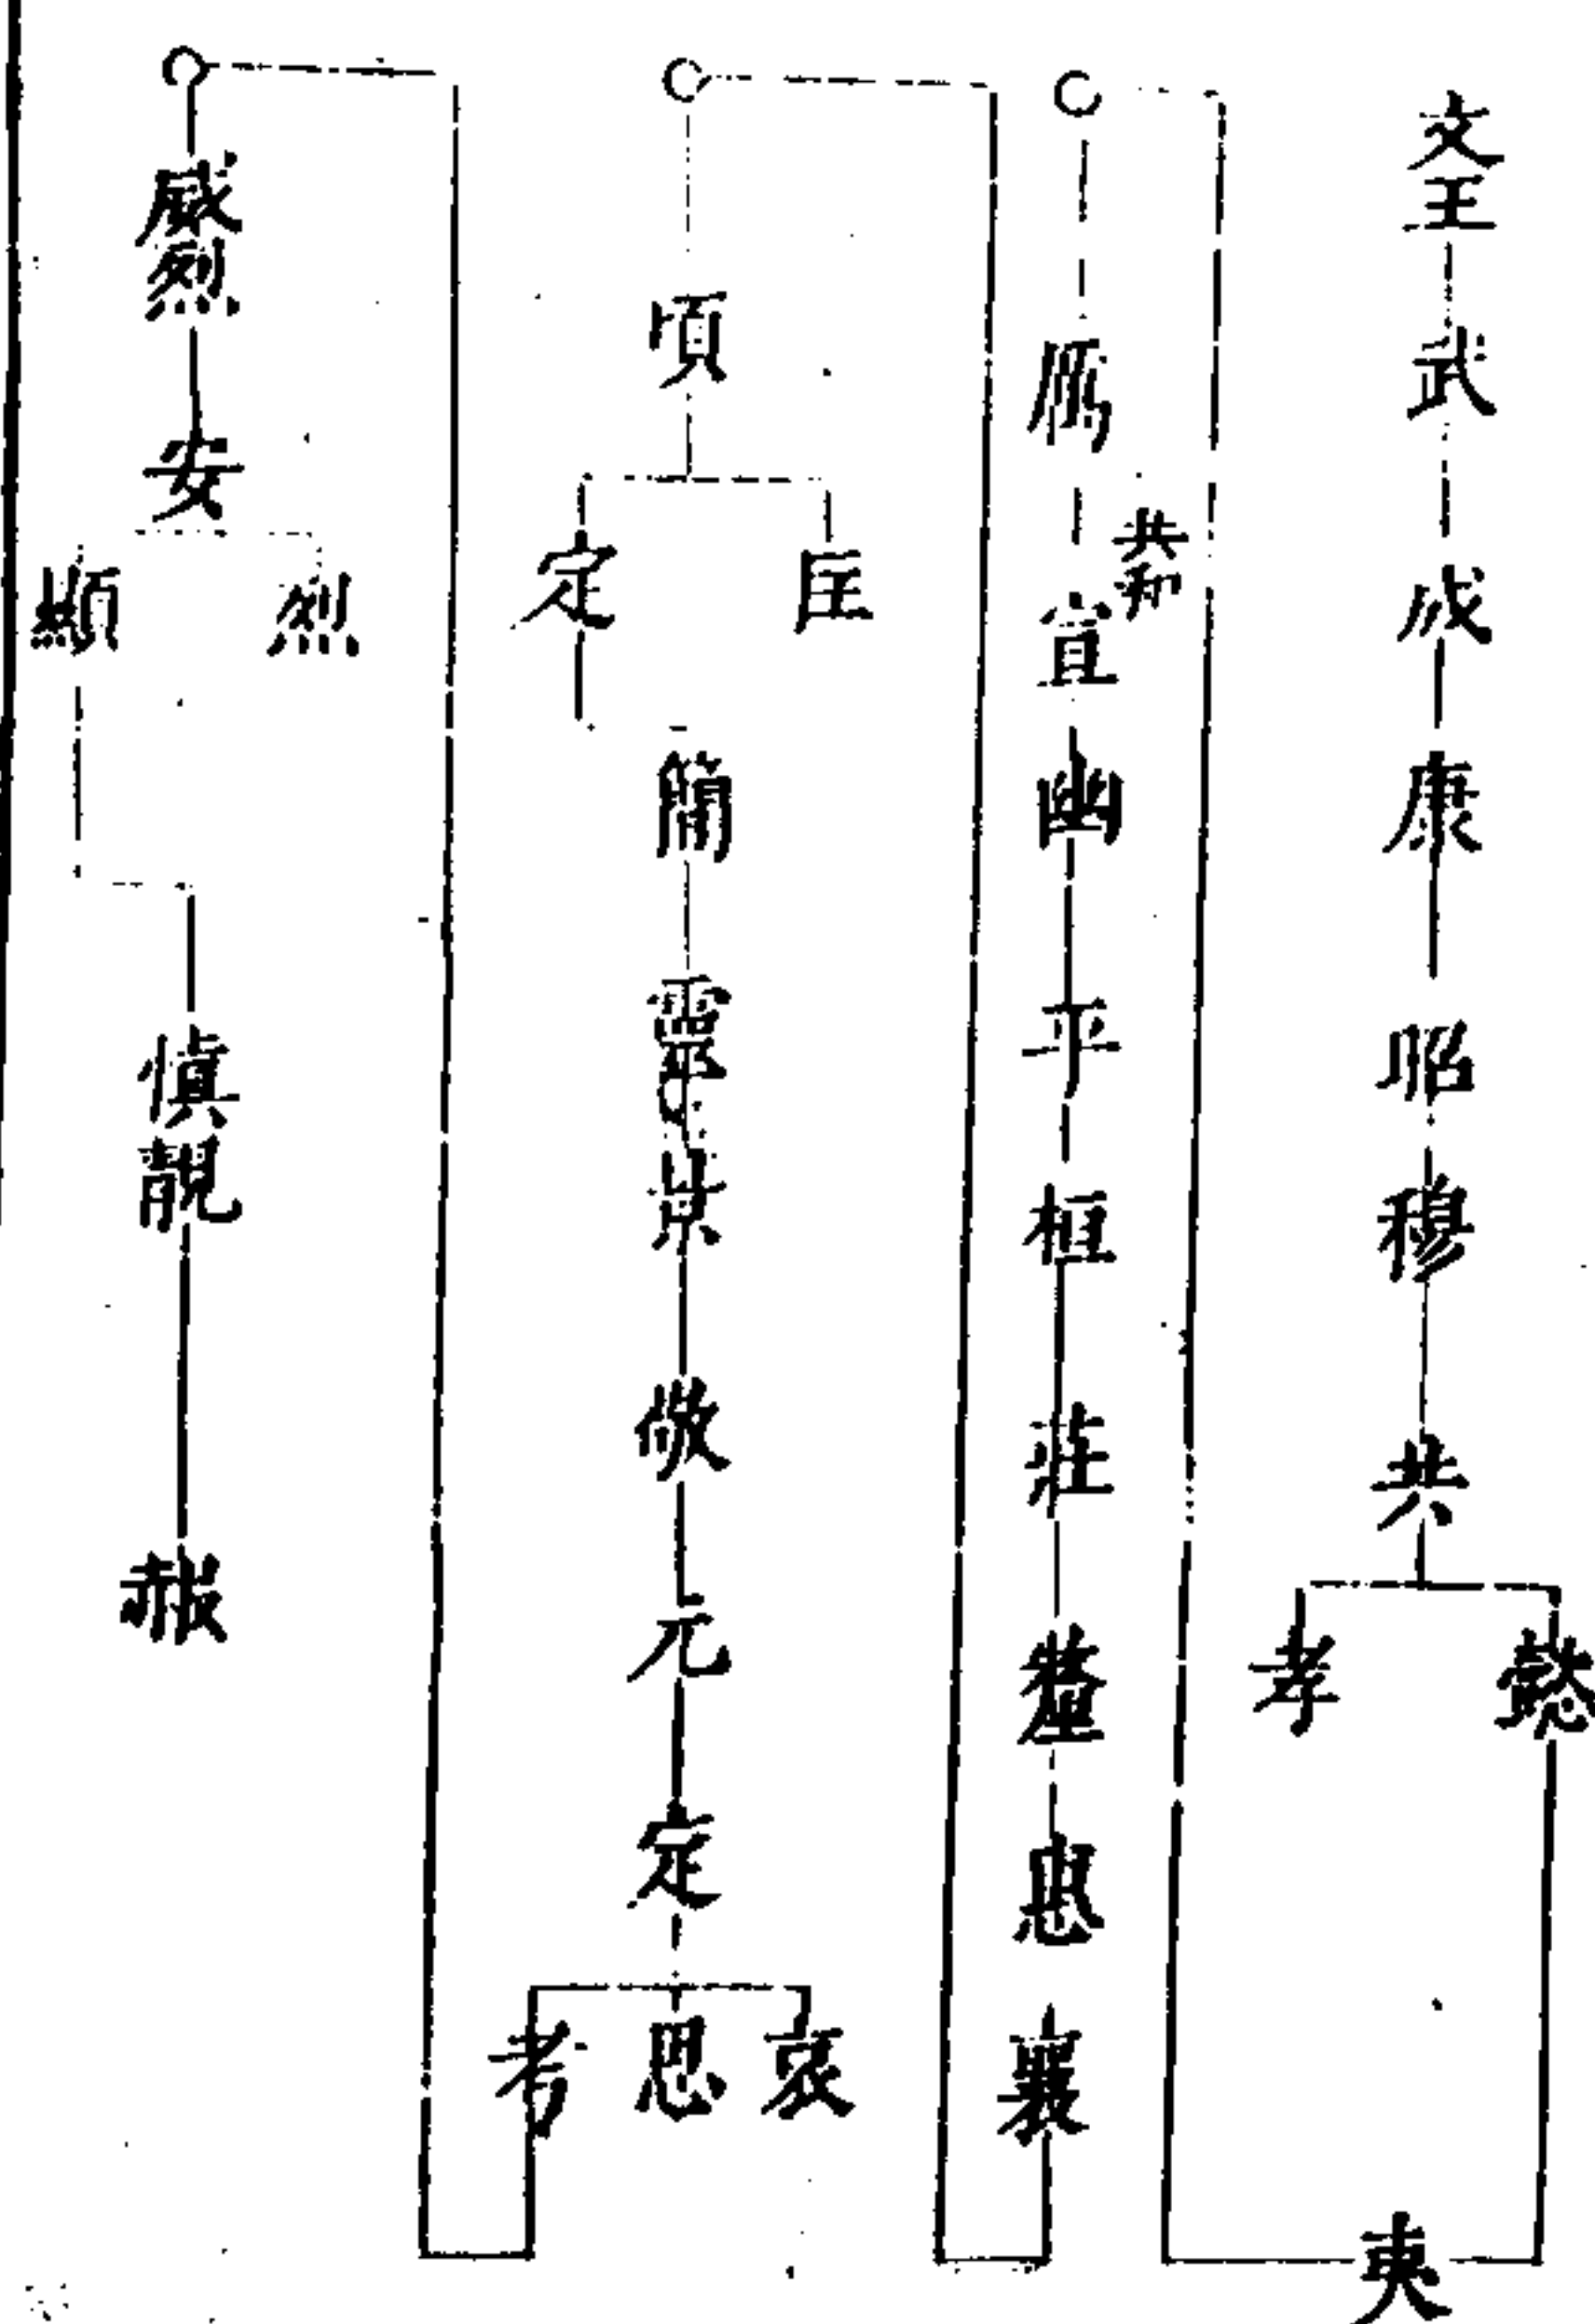 文王 武 成 康 昭 穆 共
懿
孝
夷
厲 共和 宣 幽 平 桓 莊 釐 惠 襄
頃
匡
定
簡 靈 景 敬 元 定
哀
思
考
威烈 安
烈
顯
慎靚 赧